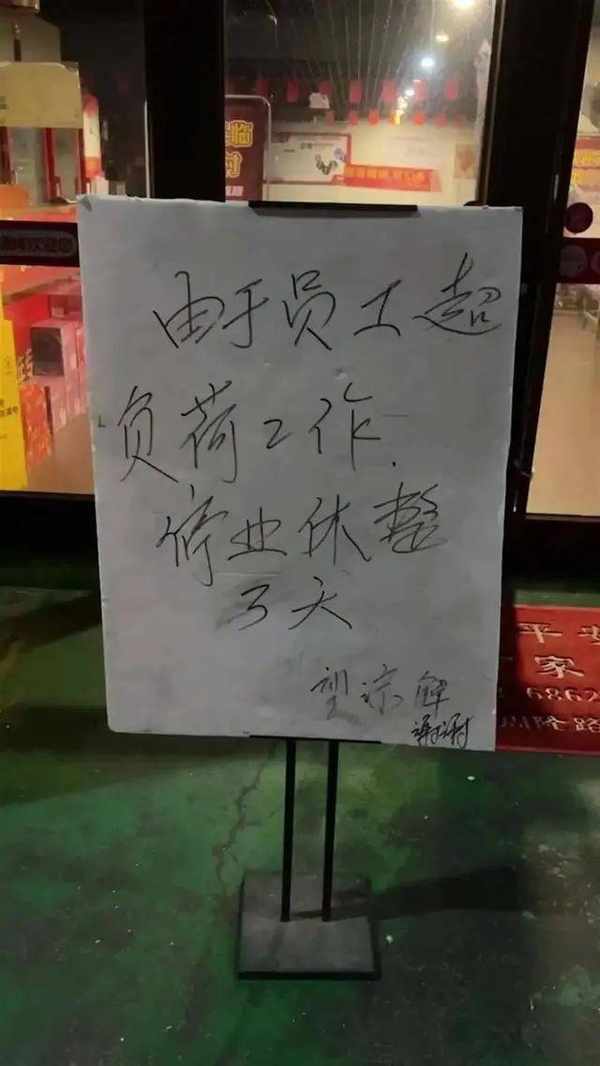 由于员工超
负荷工作.
停业休整
3天
望谅解
谢谢
临
平安
家
6862
隆路